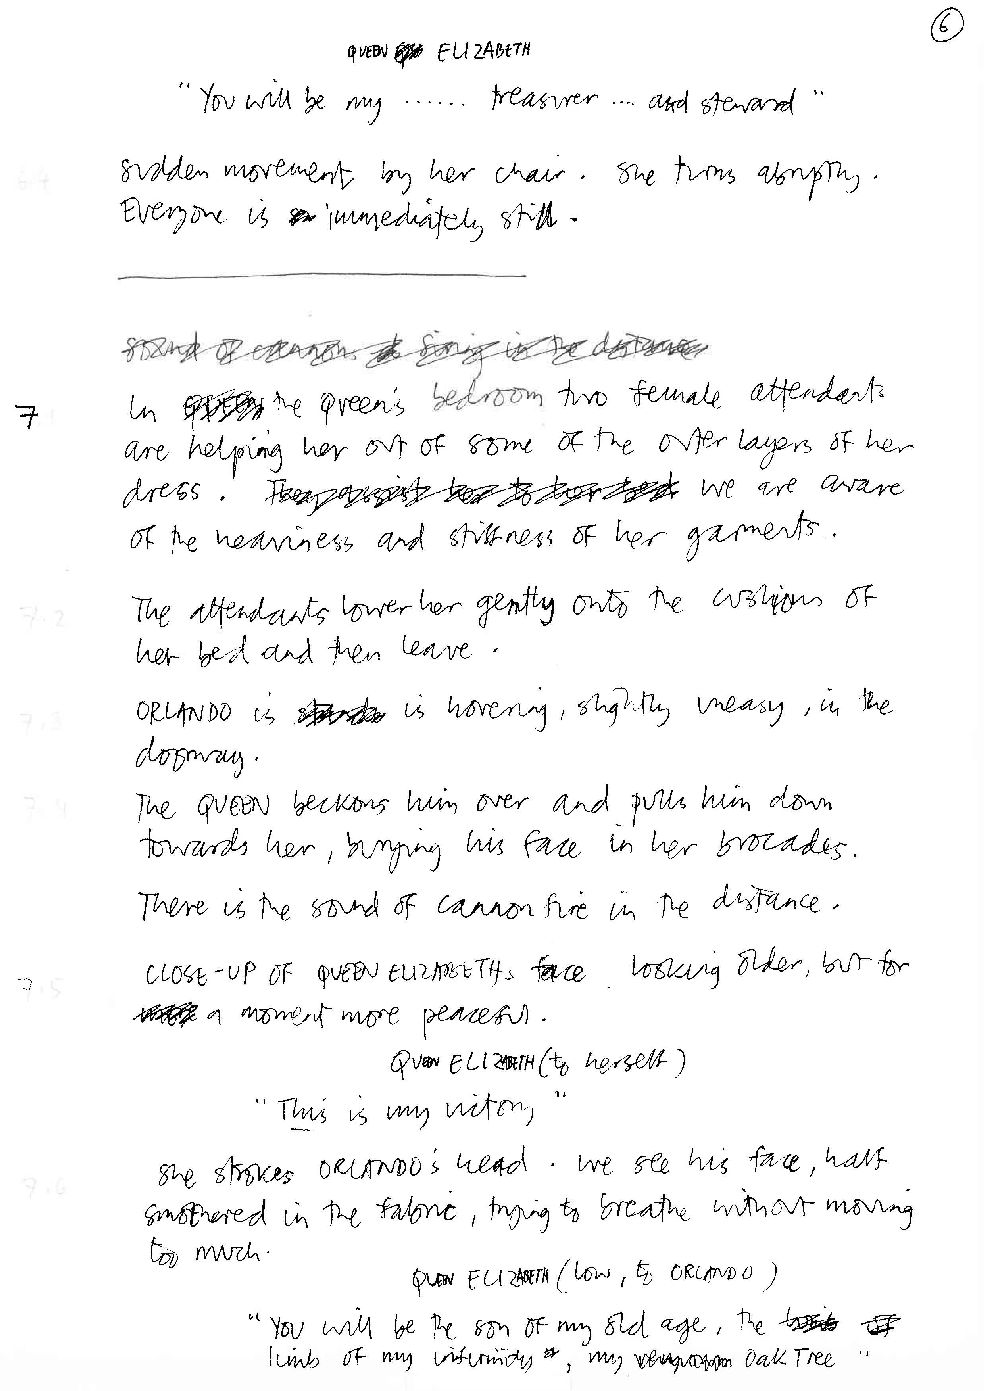 6
QUEEN ELIZABETH
"You will be my ...... treasurer ... and steward"
6.4
sudden movement, by her chair. She turns abruptly.
Everyone is immediately still.
sound of cannons firing in the distance
7
In the Queen's bedroom two female attendants
are helping her out of some of the outer layers of her
dress. They assist her to her bed we are aware
of the heaviness and stiffness of her garments.
7.2
The attendants lower her gently onto the cushions of
her bed and then leave.
7.3
ORLANDO is is hovering, slightly uneasy, in the
doorway.
7.4
The QUEEN beckons him over and pulls him down
towards her, burying his face in her brocades.
There is the sound of cannon fire in the distance.
7.5
CLOSE-UP OF QUEEN ELIZABETH's face looking older, but for
a moment more peaceful.
QUEEN ELIZABETH (to herself)
"This is my victory"
7.6
She strokes ORLANDO's head. We see his face, half
smothered in the fabric, trying to breathe without moving
too much.
QUEEN ELIZABETH (low, to ORLANDO)
"You will be the son of my old age, the
limb of my infirmity, my Oak Tree"